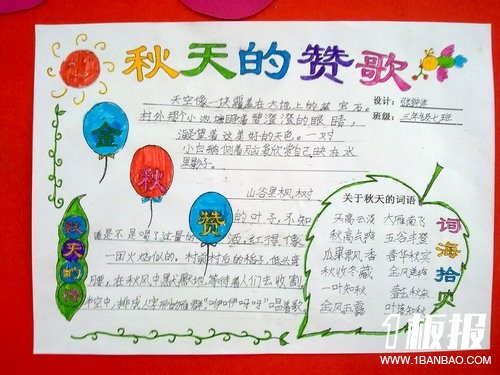 秋天的赞歌
天空像一块覆盖在大地上的蓝宝石。
村外那个小池塘睁着碧澄澄的眼睛,
凝望着这美好的天色。一对
小白鹅侧着脑袋欣赏自己映在水
里影子。
设计:
班级:三年级七班
金
秋
赞
山谷里枫树
的叶子,不知
道是不是喝了过量的酒,红得像
一团火焰似的。村前村后的稻子,低着头
,在秋风中默默地等待着人们去收割
半空中,排成人字形的雁群"咿咿呀呀"唱着歌。
秋天的
关于秋天的词语
天高云淡 大雁南飞
秋高气爽 五谷丰登
瓜果飘香 春华秋实
秋收冬藏 金风送爽
一叶知秋
金风玉露 叶落知秋
词海拾贝
1板报
WWW.1BANBAO.COM